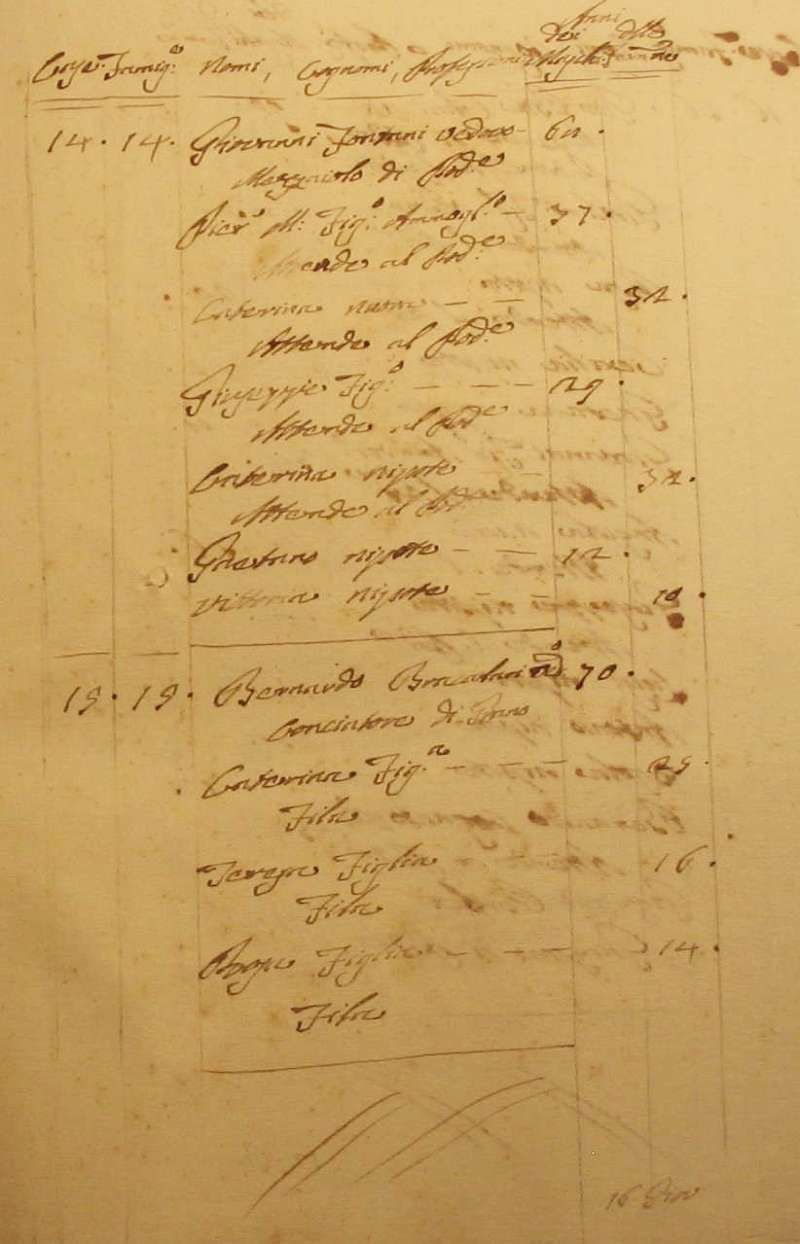 Anni
dei delle
Case. Famig.e Nomi, Cognomi, Professioni Maschi Femine
14. 14. Giovanni Fontani vedovo - 60.
di Pod.e
Pier M. Fig.o Ammogl.o - 37.
Attende al Pod.e
Caterina nuora - - 32.
Attende al Pod.e
Giuseppe Fig.o - - - 29.
Attende al Pod.e
Caterina nipote - - 32.
Attende al Pod.e
Gaetano nipote - - 12.
Vittoria nipote - - 10.
19. 19. Bernardo 70.
Conciatore di
Caterina Fig.a - - - 29.
Fila
Teresa Figlia - - 16.
Fila
Rosa Figlia - - - 14.
Fila
16